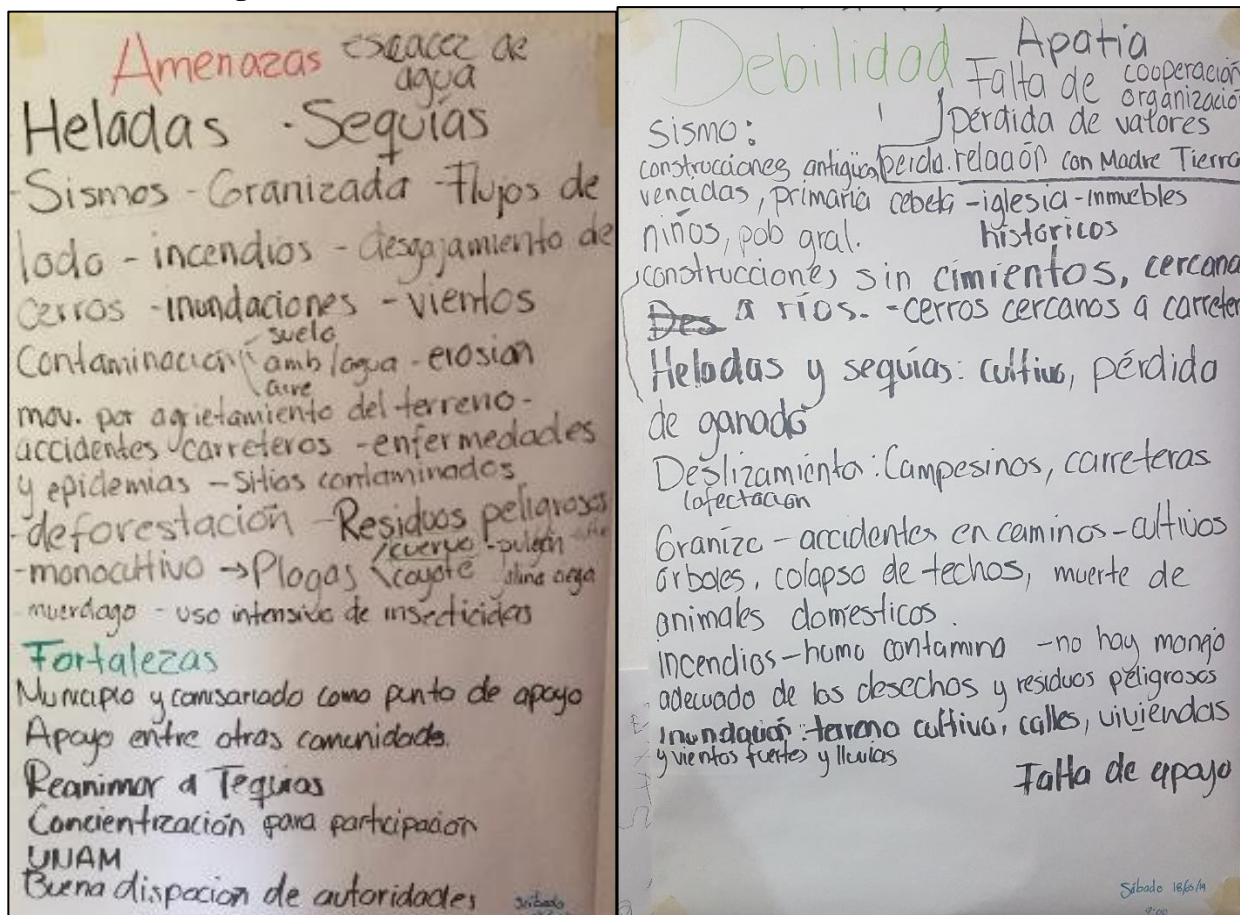 Amenazas escacez de
agua
Heladas - Sequías
-Sismos - Granizada - Flujos de
lodo - incendios - desgajamiento de
cerros - inundaciones - vientos
suelo
Contaminación amb/agua - erosión
aire
mov. por agrietamiento del terreno -
accidentes carreteros - enfermedades
y epidemias - Sitios contaminados
-deforestación - Residuos peligrosos
/cuervo - pulgón
-monocultivo → Plagas \coyote
muerdago - uso intensivo de insecticidas
Fortalezas
Municipio y comisariado como punto de apoyo
Apoyo entre otras comunidades.
Reanimar a Tequios
Concientización para participación
UNAM
Buena dispocion de autoridades
Sábado
Debilidad Apatía
Falta de cooperación
organización
pérdida de valores
Sismo:
construcciones antiguas perdo. relación con Madre Tierra
venadas, primaria cebeta - iglesia - inmuebles
históricos
niños, pob gral.
construcciones sin cimientos, cercana
Des a ríos. - cerros cercanos a carreter
Heladas y sequías: cultivo, pérdida
de ganado
Deslizamiento: Campesinos, carreteras
(afectación
Granizo - accidentes en caminos - cultivos
árboles, colapso de techos, muerte de
animales domésticos.
Incendios - humo contamina - no hay manejo
adecuado de los desechos y residuos peligrosos
Inundación: terreno cultivo, calles, viviendas
y vientos fuertes y lluvias
Falta de apoyo
Sábado 18/05/19
9:00